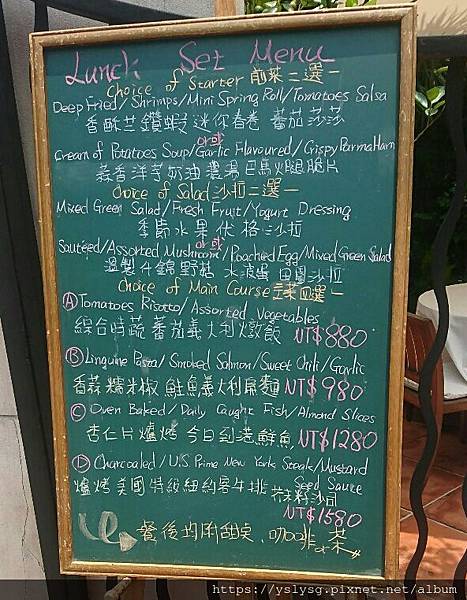 Lunch Set Menu
Choice of Starter 前菜二選一
Deep Fried/Shrimps/Mini Spring Roll/Tomatoes Salsa
香酥芝鑽蝦 迷你春卷 番茄莎莎
or或
Cream of Potatoes Soup/Garlic Flavoured/Crispy Parma Ham
蒜香洋芋奶油濃湯 巴馬火腿脆片
Choice of Salad 沙拉二選一
Mixed Green Salad/Fresh Fruit/Yogurt Dressing
季節水果優格沙拉
or或
Sauteed/Assorted Mushroom/Poached Egg/Mixed Green Salad
溫製什錦野菇 水波蛋 田園沙拉
Choice of Main Course 主菜四選一
Ⓐ Tomatoes Risotto/Assorted Vegetables
綜合時蔬番茄義大利燉飯 NT$880
Ⓑ Linguine Pasta/Smoked Salmon/Sweet Chili/Garlic
香蒜糯米椒 鮭魚義大利扁麵 NT$980
Ⓒ Oven Baked/Daily Caught Fish/Almond Slices
杏仁片爐烤今日到港鮮魚 NT$1280
Ⓓ Charcoaled/U.S Prime New York Steak/Mustard Seed Sauce
爐烤美國特級紐約客牛排 芥末籽沙司
NT$1580
餐後均附甜點、咖啡or茶
https://yslysg.pixnet.net/album